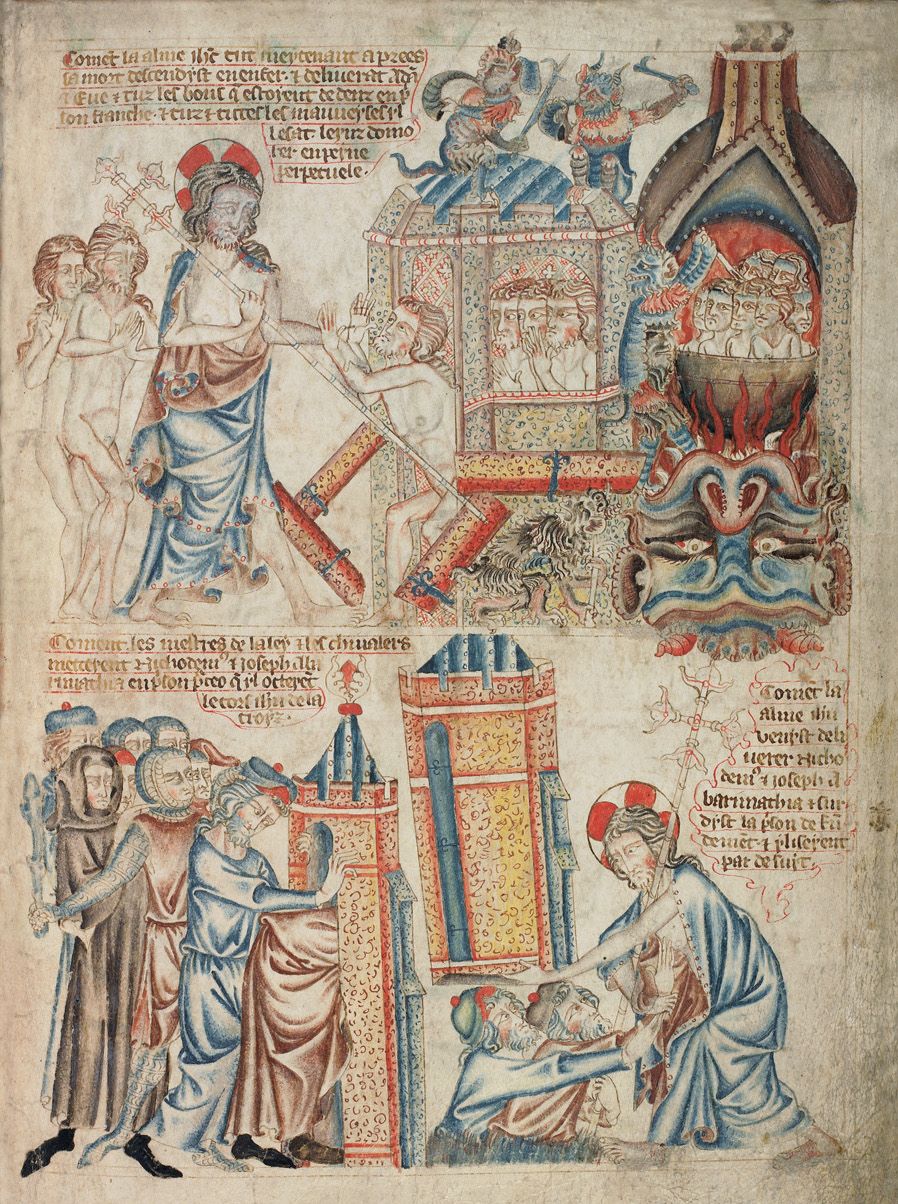 Coment la alme ihu eut meyntenaunt aprees
sa mort descendyst en enfer · & deliverat Adā
& Eve & tuz les bons q̄ estoyent dedenz en p̄
son franche · & tuz & tuttes les mauveyses yl
lesat leynz domo
rer en peyne
perpetuele ·
Coment les mestres de la ley & les chivalers
metteyent Nichodem⁹ & Joseph Ab
rimathia en p̄son p̄ceo q̄ yl otteyet
le cors ihu de la
croyz ·
Comēt la
alme ihu
venyst deli
verer Nicho
dem⁹ & Joseph A
barimathia & sur
dyst la p̄son de
& yl iseyent
par desuz ·